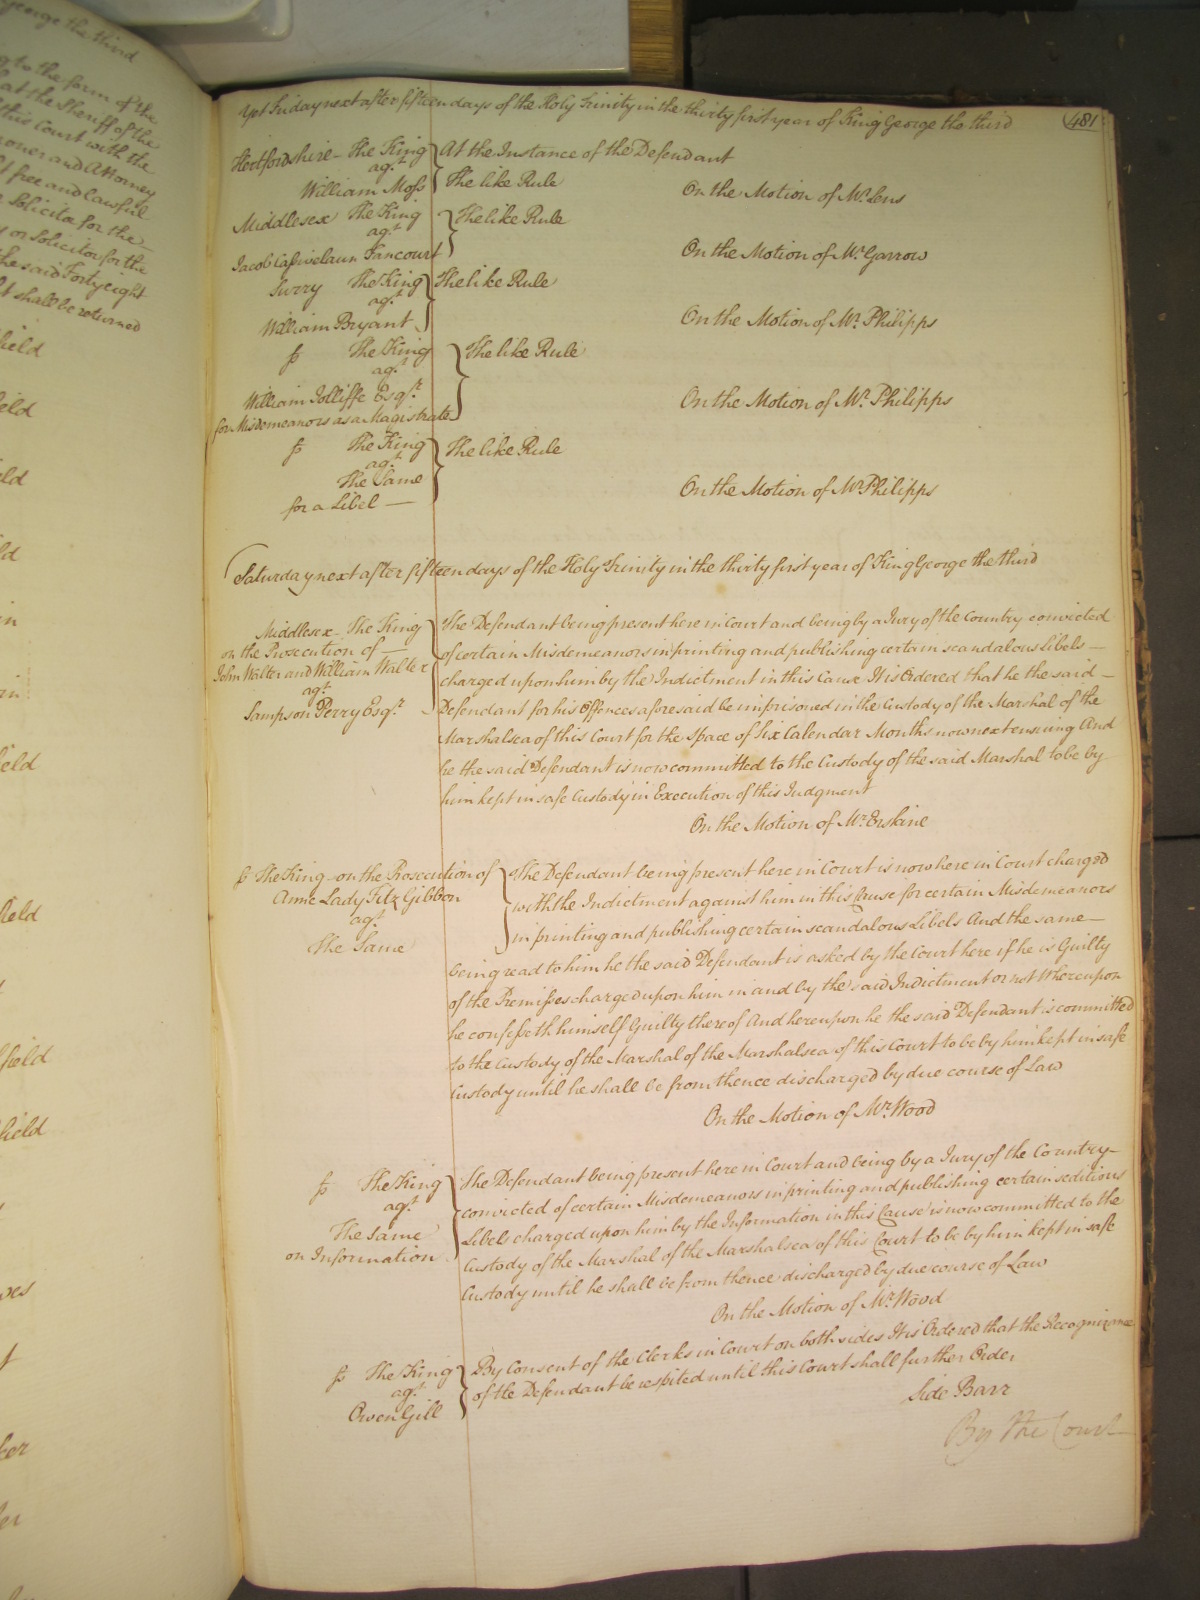 george the third
g to the form of the
at the Sheriff of the
this Court with the
roner and Attorney
free and Lawful
Solicitor for the
or Solicitor for the
the said Forty eight
shall be returned
field
eld
ld
ld
in
in
eld
field
field
field
ves
ker
Yet Friday next after fifteen days of the Holy Trinity in the thirty first year of King George the third
481
Hertfordshire - The King
agt.
William Moss
At the Instance of the Defendant
The like Rule
On the Motion of Mr. Lens
Middlesex The King
agt.
Jacob Cassivelaun Fancourt
The like Rule
On the Motion of Mr. Garrow
Surry The King
agt.
William Bryant
The like Rule
On the Motion of Mr. Philipps
The King
agt.
William Jolliffe Esqr.
for Misdemeanors as a Magistrate
The like Rule
On the Motion of Mr. Philipps
The King
agt.
The Same
for a Libel —
The like Rule
On the Motion of Mr. Philipps
Saturday next after fifteen days of the Holy Trinity in the thirty first year of King George the third
Middlesex - The King
on the Prosecution of —
John Walter and William Walter
agt.
Sampson Perry Esqr. -
The Defendant being present here in Court and being by a Jury of the Country convicted
of certain Misdemeanors in printing and publishing certain scandalous Libels —
charged upon him by the Indictment in this Cause It is Ordered that he the said —
Defendant for his Offences aforesaid be imprisoned in the Custody of the Marshal of the
Marshalsea of this Court for the Space of Six Calendar Months now next ensuing And
he the said Defendant is now committed to the Custody of the said Marshal to be by
him kept in safe Custody in Execution of this Judgment
On the Motion of Mr. Erskine
The King - on the Prosecution of
Anne Lady Fitz Gibbon
agt.
The Same
The Defendant being present here in Court is now here in Court charged
with the Indictment against him in this Cause for certain Misdemeanors
in printing and publishing certain scandalous Libels And the same —
being read to him he the said Defendant is asked by the Court here if he is Guilty
of the Premisses charged upon him in and by the said Indictment or not Whereupon
he confesseth himself Guilty thereof And hereupon he the said Defendant is committed
to the Custody of the Marshal of the Marshalsea of this Court to be by him kept in safe
Custody until he shall be from thence discharged by due course of Law
On the Motion of Mr. Wood
The King
agt.
The Same
on Information
The Defendant being present here in Court and being by a Jury of the Country —
convicted of certain Misdemeanors in printing and publishing certain seditious
Libels charged upon him by the Information in this Cause is now committed to the
Custody of the Marshal of the Marshalsea of this Court to be by him kept in safe
Custody until he shall be from thence discharged by due course of Law
On the Motion of Mr. Wood
The King
agt.
Owen Gill
By Consent of the Clerks in Court on both sides It is Ordered that the Recognizance
of the Defendant be respited until this Court shall further Order
Side Barr
By the Court